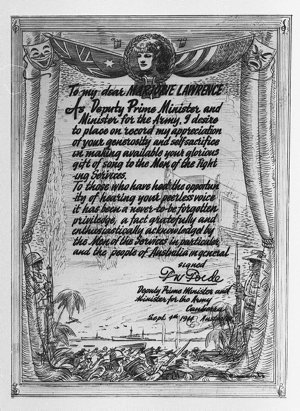 To my dear MARJORIE LAWRENCE
As Deputy Prime Minister and
Minister for the Army, I desire
to place on record my appreciation
of your generosity and self sacrifice
in making available your glorious
gift of song to the Men of the Fight-
ing Services.
To those who have had the opportun-
ity of hearing your peerless voice
it has been a never-to-be forgotten
privilege, a fact gratefully and
enthusiastically acknowledged by
the Men of the Services in particular
and the people of Australia in general
signed
Deputy Prime Minister and
Minister for the Army
Canberra
Sept. 4th 1944 Australia